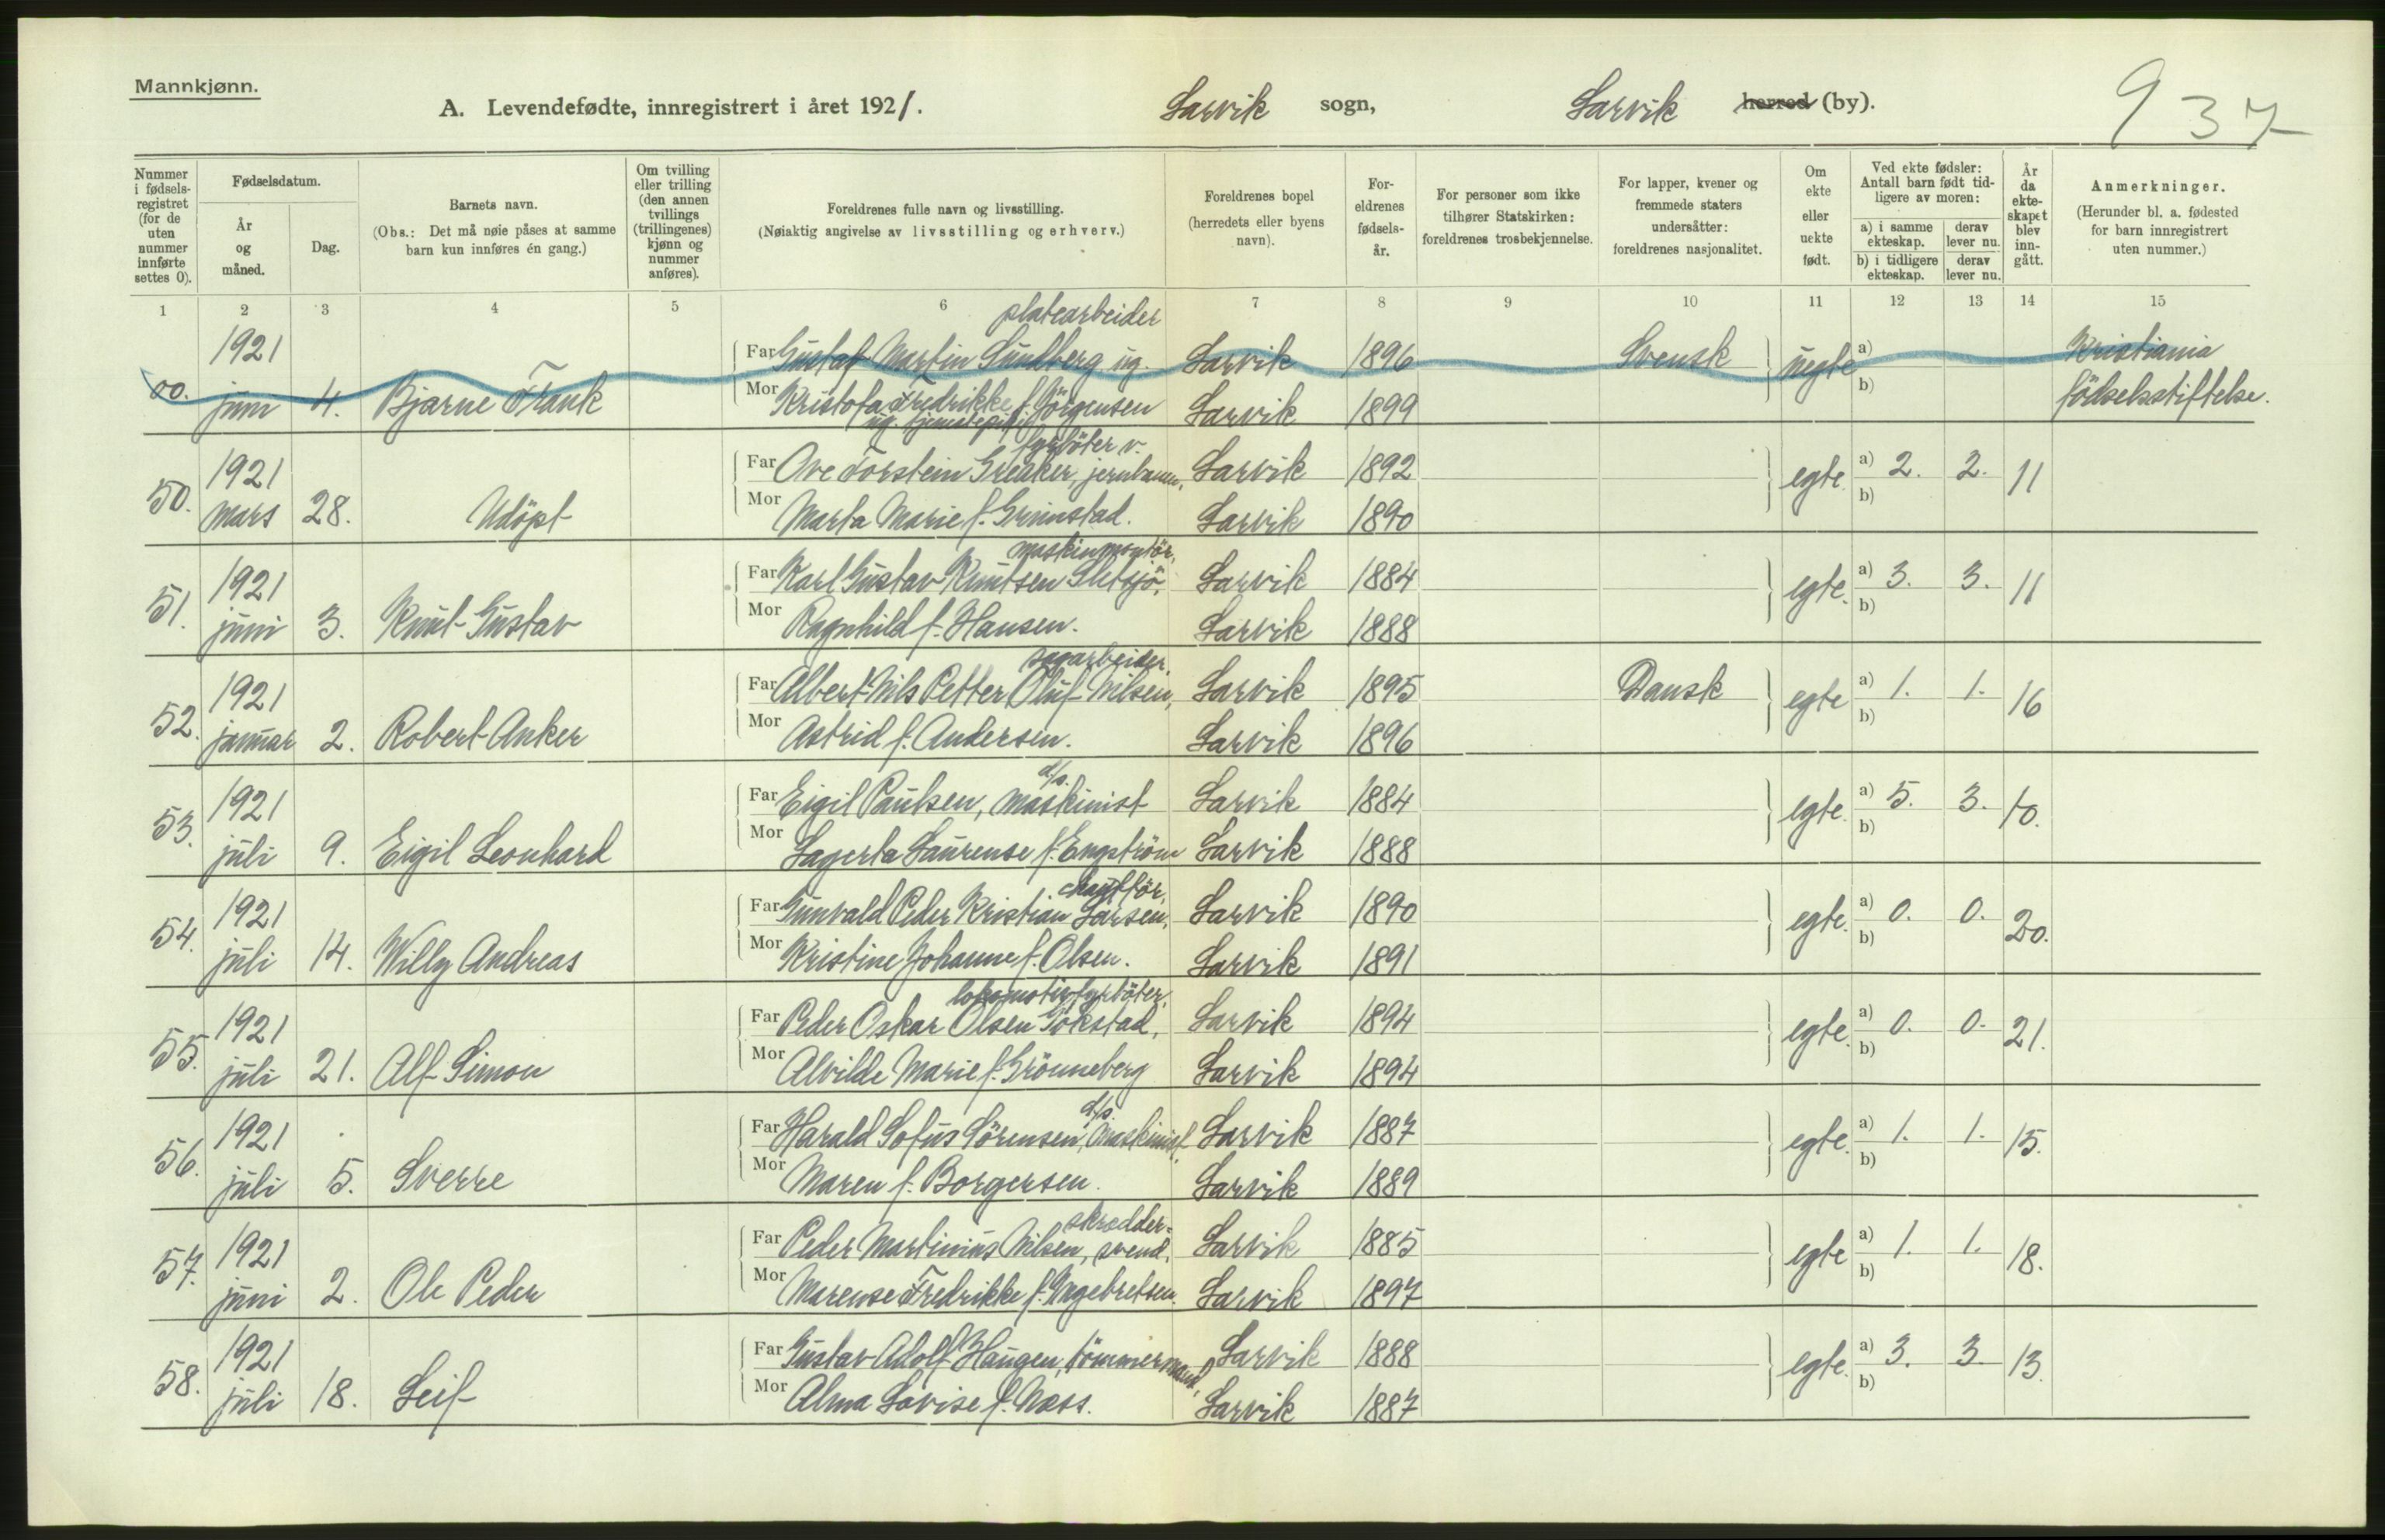 Mannkjønn.
A. Levendefødte, innregistrert i året 1921. Larvik sogn, Larvik herred (by). 937
Nummer i fødsels-registret (for de uten nummer innførte settes 0).
Fødselsdatum.
År og måned.
Dag.
Barnets navn.
(Obs.: Det må nøie påses at samme barn kun innføres én gang.)
Om tvilling eller trilling (den annen tvillings (trillingenes) kjønn og nummer anføres).
Foreldrenes fulle navn og livsstilling.
(Nøiaktig angivelse av livsstilling og erhverv.)
Foreldrenes bopel
(herredets eller byens navn).
For-eldrenes fødsels-år.
For personer som ikke tilhører Statskirken: foreldrenes trosbekjennelse.
For lapper, kvener og fremmede staters undersåtter: foreldrenes nasjonalitet.
Om ekte eller uekte født.
Ved ekte fødsler: Antall barn født tid-ligere av moren:
a) i samme ekteskap. derav lever nu.
b) i tidligere ekteskap. derav lever nu.
År da ekte-skapet blev inn-gått.
Anmerkninger.
(Herunder bl. a. fødested for barn innregistrert uten nummer.)
1 2 3 4 5 6 7 8 9 10 11 12 13 14 15
platearbeider
1921 Far Gustaf Martin Sundberg ug. Larvik 1896 Svensk uegte a) Kristiania
00. juni 4. Bjarne Frank Mor Kristofa Fredrikke f. Jörgensen Larvik 1899 b) födselsstiftelse.
ug. tjenestepike
fyrböter v.
1921 Far Ove Torstein Greaker, jernbanen. Larvik 1892 egte a) 2. 2. 11
50. mars 28. Udöpt Mor Marta Marie f. Grimstad. Larvik 1890 b)
maskinmontör.
1921 Far Karl Gustav Knutsen Sletsjö. Larvik 1884 egte. a) 3. 3. 11
51. juni 3. Knut Gustav Mor Ragnhild f. Hansen. Larvik 1888 b)
sagarbeider.
1921 Far Albert Nils Petter Oluf Nilsen, Larvik 1895 Dansk egte a) 1. 1. 16
52. januar 2. Robert Anker Mor Astrid f. Andersen. Larvik 1896 b)
d/s.
1921 Far Eigil Paulsen, maskinist Larvik 1884 egte. a) 5. 3. 10.
53. juli 9. Eigil Leonhard Mor Lagerta Laurense f. Engström Larvik 1888 b)
chaufför.
1921 Far Gunvald Peder Kristian Larsen, Larvik 1890 egte. a) 0. 0. 20.
54. juli 14. Willy Andreas Mor Kristine Johanne f. Olsen. Larvik 1891 b)
lokomotivfyrböter.
1921 Far Peder Oskar Olsen Gokstad, Larvik 1894 egte. a) 0. 0. 21.
55. juli 21. Alf Simon Mor Alvilde Marie f. Grönneberg Larvik 1894 b)
d/s.
1921 Far Harald Sofus Sörensen, maskinist. Larvik 1887 egte. a) 1. 1. 15.
56. juli 5. Sverre Mor Maren f. Borgersen. Larvik 1889 b)
skrædder-
1921 Far Peder Martinius Nilsen, svend. Larvik 1885 egte a) 1. 1. 18.
57. juni 2. Ole Peder Mor Marense Fredrikke f. Ingebretsen. Larvik 1897 b)
1921 Far Gustav Adolf Haugen, tömmermand, Larvik 1888 egte. a) 3. 3. 13.
58. juli 18. Leif Mor Alma Lovise f. Næss. Larvik 1887 b)